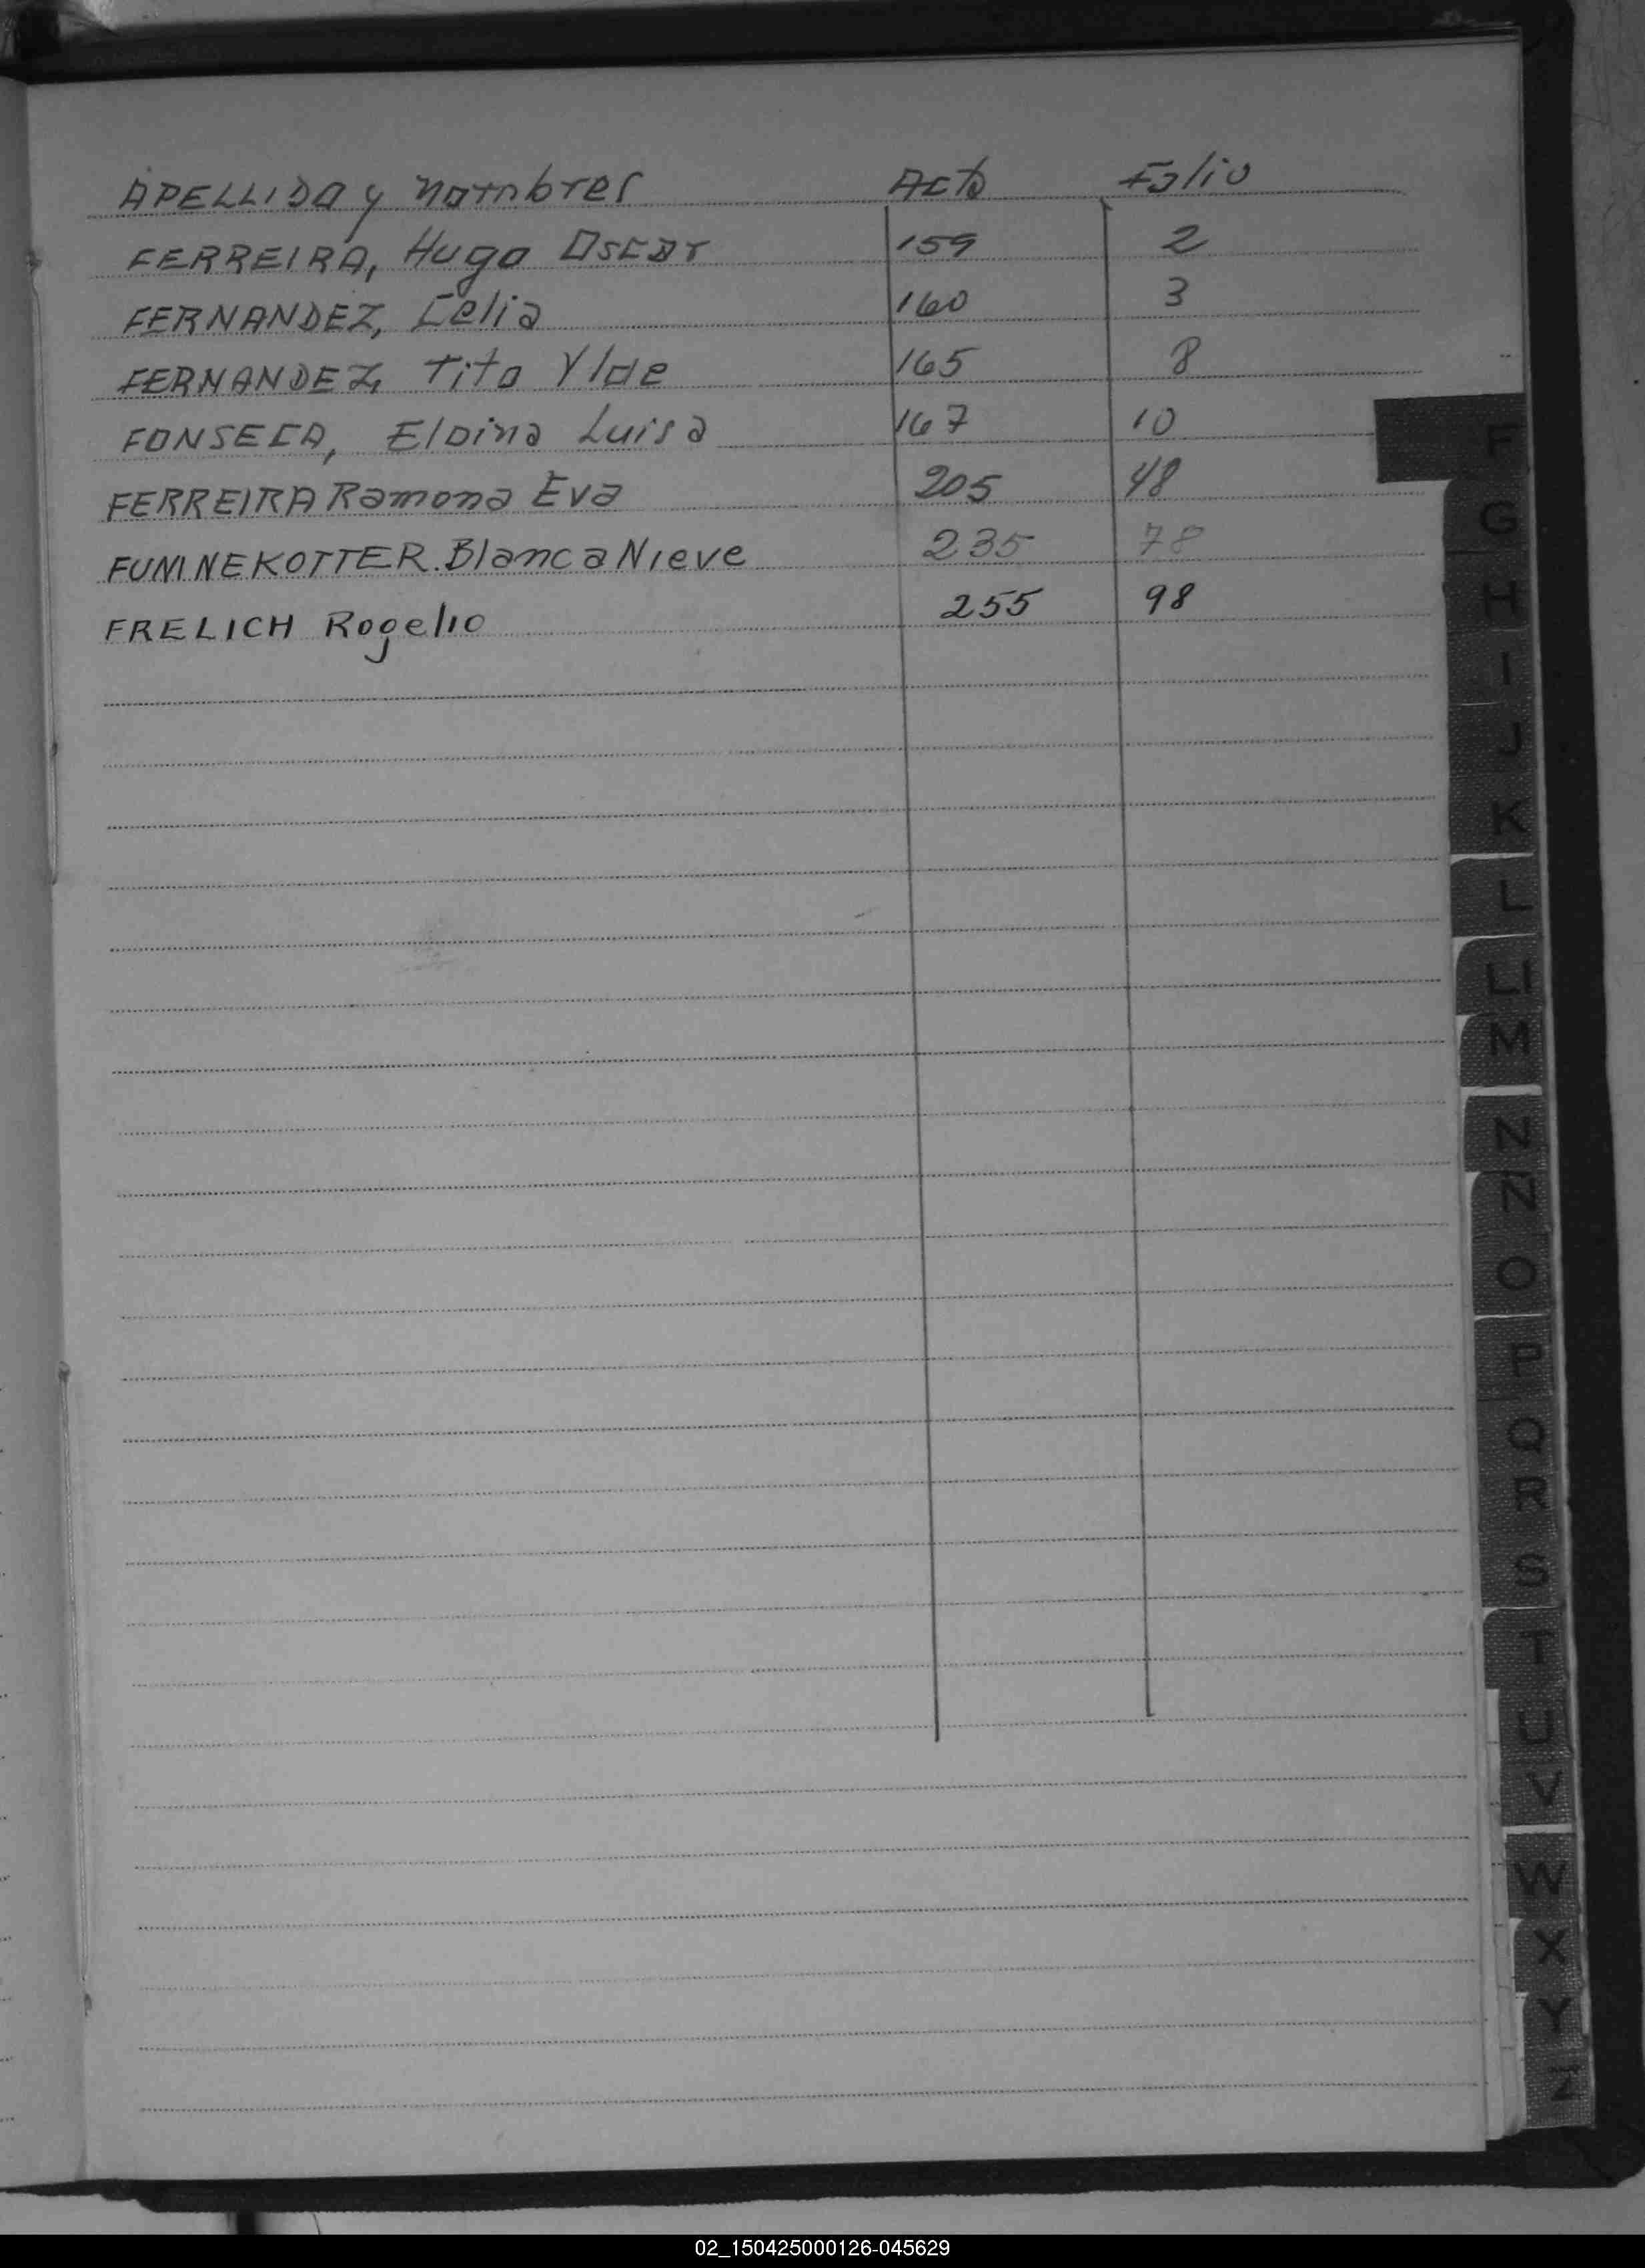 APELLIDO y nombres Acta Folio
FERREIRA, Hugo Oscar 159 2
FERNANDEZ, Celia 160 3
FERNANDEZ, Tito Ylde 165 8
FONSECA, Eloina Luisa 167 10
FERREIRA Ramona Eva 205 48
FUNINEKOTTER. Blanca Nieve 235 78
FRELICH Rogelio 255 98
F
G
H
I
J
K
L
Ll
M
N
Ñ
O
P
Q
R
S
T
U
V
W
X
Y
Z
02_150425000126-045629